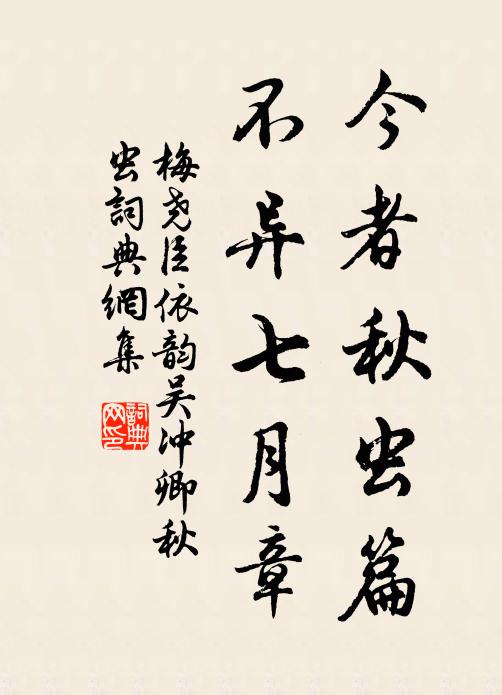 今者秋虫篇
不异七月章
梅尧臣依韵吴冲卿秋
虫詞典網集
詞典网印